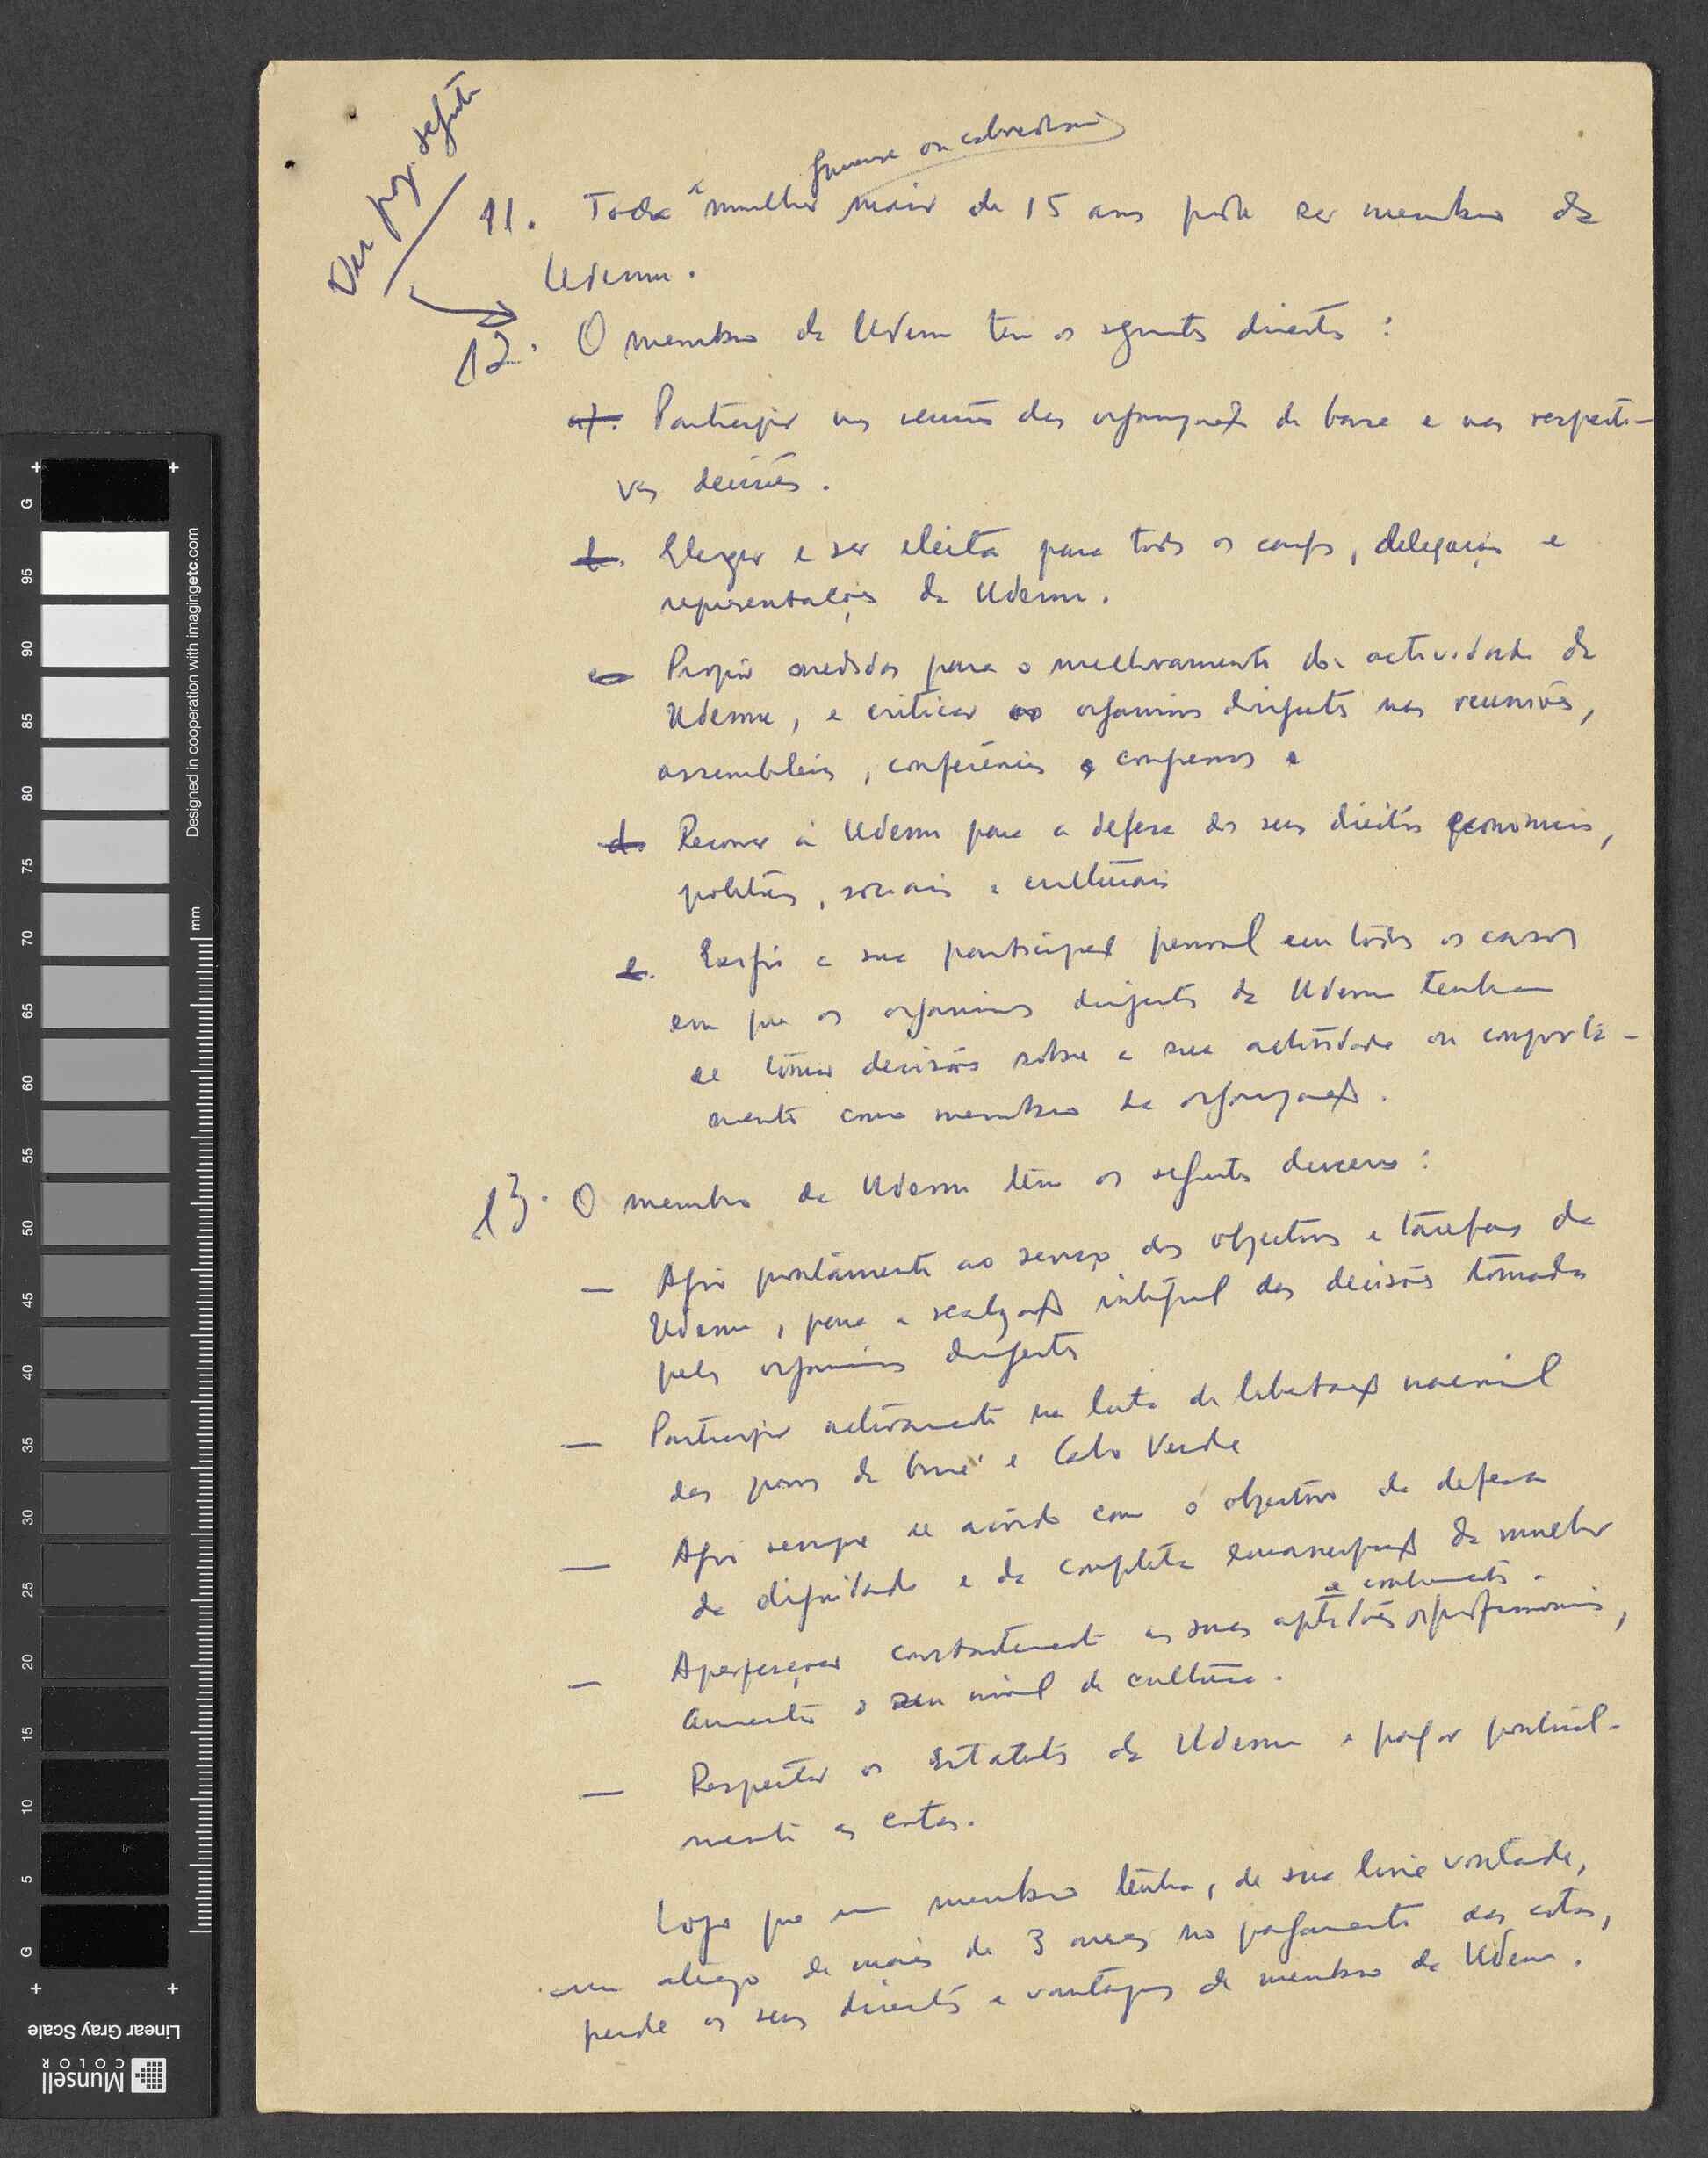 Ver pag. seguinte
guineense ou caboverdeana
11. Toda a mulher maior de 15 anos pode ser membro da
Udemu.
12. O membro da Udemu tem os seguintes direitos :
a). Participar nas reuniões das organizações de base e nas respecti-
vas decisões.
b. Eleger e ser eleita para todos os cargos, delegações e
representações da Udemu.
c Propor medidas para o melhoramento da actividade da
Udemu, e criticar os organismos dirigentes nas reuniões,
assembleias, conferências e congressos e
d. Recorrer à Udemu para a defesa dos seus direitos económicos,
políticos, sociais e culturais
e. Exigir a sua participação pessoal em todos os casos
em que os organismos dirigentes da Udemu tenham
de tomar decisões sobre a sua actividade ou comporta-
mento como membro da organização.
13. O membro da Udemu tem os seguintes deveres :
— Agir prontamente ao serviço dos objectivos e tarefas da
Udemu, para a realização integral das decisões tomadas
pelos organismos dirigentes
— Participar activamente na luta de libertação nacional
dos povos da Guiné e Cabo Verde
— Agir sempre de acordo com o objectivo da defesa
da dignidade e da completa emancipação da mulher
e conhecimentos
— Aperfeiçoar constantemente as suas aptidões profissionais,
aumentar o seu nível de cultura.
— Respeitar os Estatutos da Udemu e pagar pontual-
mente as cotas.
Logo que um membro tenha, de sua livre vontade,
um atrazo de mais de 3 meses no pagamento das cotas,
perde os seus direitos e vantagens de membro da Udemu.
Designed in cooperation with imagingetc.com
mm
G
95
90
85
80
75
70
65
60
55
50
45
40
35
30
25
20
15
10
5
G
Linear Gray Scale
Munsell
COLOR